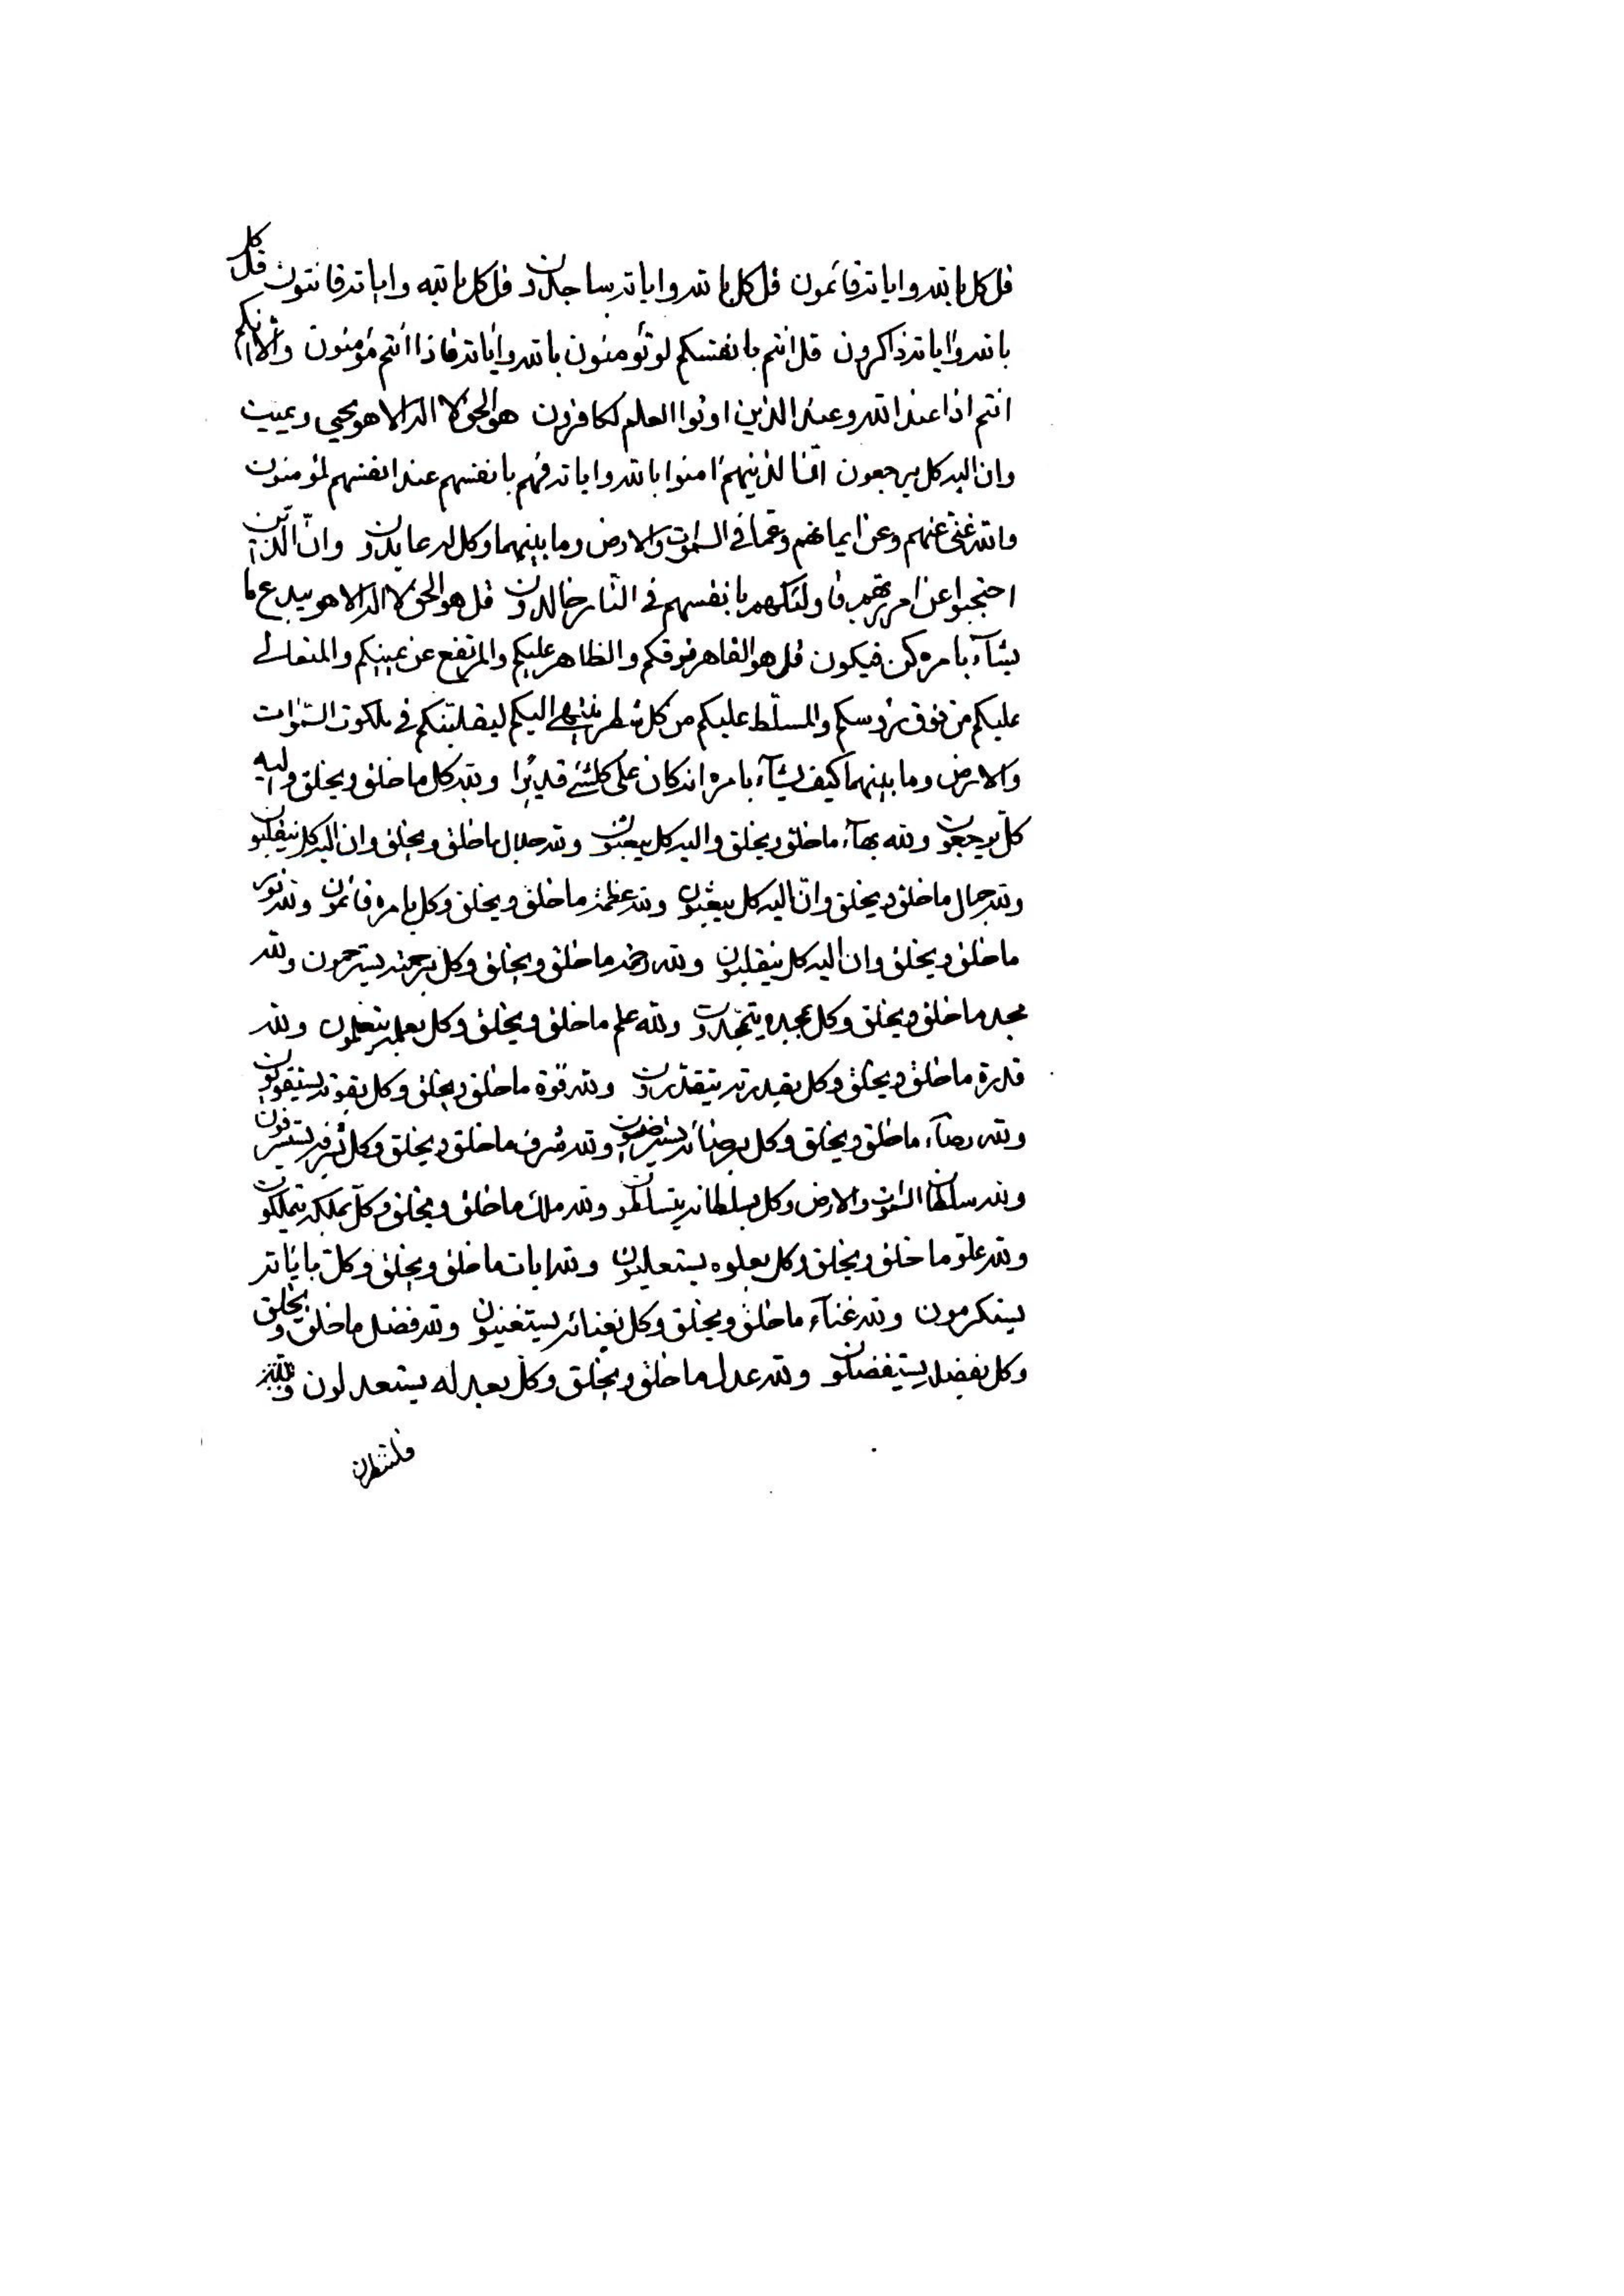 قل كل بالله واياته قائمون قل كل بالله واياته ساجدون قل كل بالله واياته قانتون قل كل
بالله واياته ذاكرون قل انتم بانفسكم لو تؤمنون بالله واياته فاذا انتم مؤمنون والا انكم
انتم اذا عند الله وعند الذين اوتوا العلم لكافرون هو الحق لا اله الا هو يحيي ويميت
وان اليه كل يرجعون اتما الذينهم امنوا بالله واياته فهم بانفسهم عند انفسهم لمؤمنون
والله غني عنهم وعن ايمانهم وعما في السموات والارض وما بينهما وكل له عابدون وان الذين
احتجبوا عن امر ربهم فاولئكهم بانفسهم في النار خالدون قل هو الحق لا اله الا هو يبدع ما
يشآء بامره كن فيكون قل هو القاهر فوقكم والظاهر عليكم والمرتفع عن يمينكم والمتعالي
عليكم من فوق رؤسكم والمسلّط عليكم من كل شطر ينتهي اليكم ليقلبنكم في ملكوت السموات
والارض وما بينهما كيف يشآء بامره انه كان على كلشئ قديرا ولله كل ما خلق ويخلق واليه
كل يرجعون ولله بهآء ما خلق ويخلق واليه كل يبعثون ولله جلال ما خلق ويخلق وان اليه كل ينقلبون
ولله جمال ما خلق ويخلق وان اليه كل يبعثون ولله عظمة ما خلق ويخلق وكل بامره قائمون ولله نور
ما خلق ويخلق وان اليه كل ينقلبون ولله رحمة ما خلق ويخلق وكل برحمته يسترحمون ولله
مجد ما خلق ويخلق وكل بمجده يتمجدون ولله علم ما خلق ويخلق وكل بعلمه يتعلمون ولله
قدرة ما خلق ويخلق وكل بقدرته يتقدرون ولله قوة ما خلق ويخلق وكل بقوته يستقويون
ولله رضآء ما خلق ويخلق وكل برضائه يسترضيون ولله شرف ما خلق ويخلق وكل بشرفه يستشرفون
ولله سلطان السموات والارض وكل بسلطانه يتسلطون ولله ملك ما خلق ويخلق وكل بملكه يتملكون
ولله علو ما خلق ويخلق وكل بعلوه يستعليون ولله ايات ما خلق ويخلق وكل باياته
يستكرمون ولله غنآء ما خلق ويخلق وكل بغنائه يستغنيون ولله فضل ما خلق ويخلق
وكل بفضله يستفضلون ولله عدل ما خلق ويخلق وكل بعدله يستعدلون